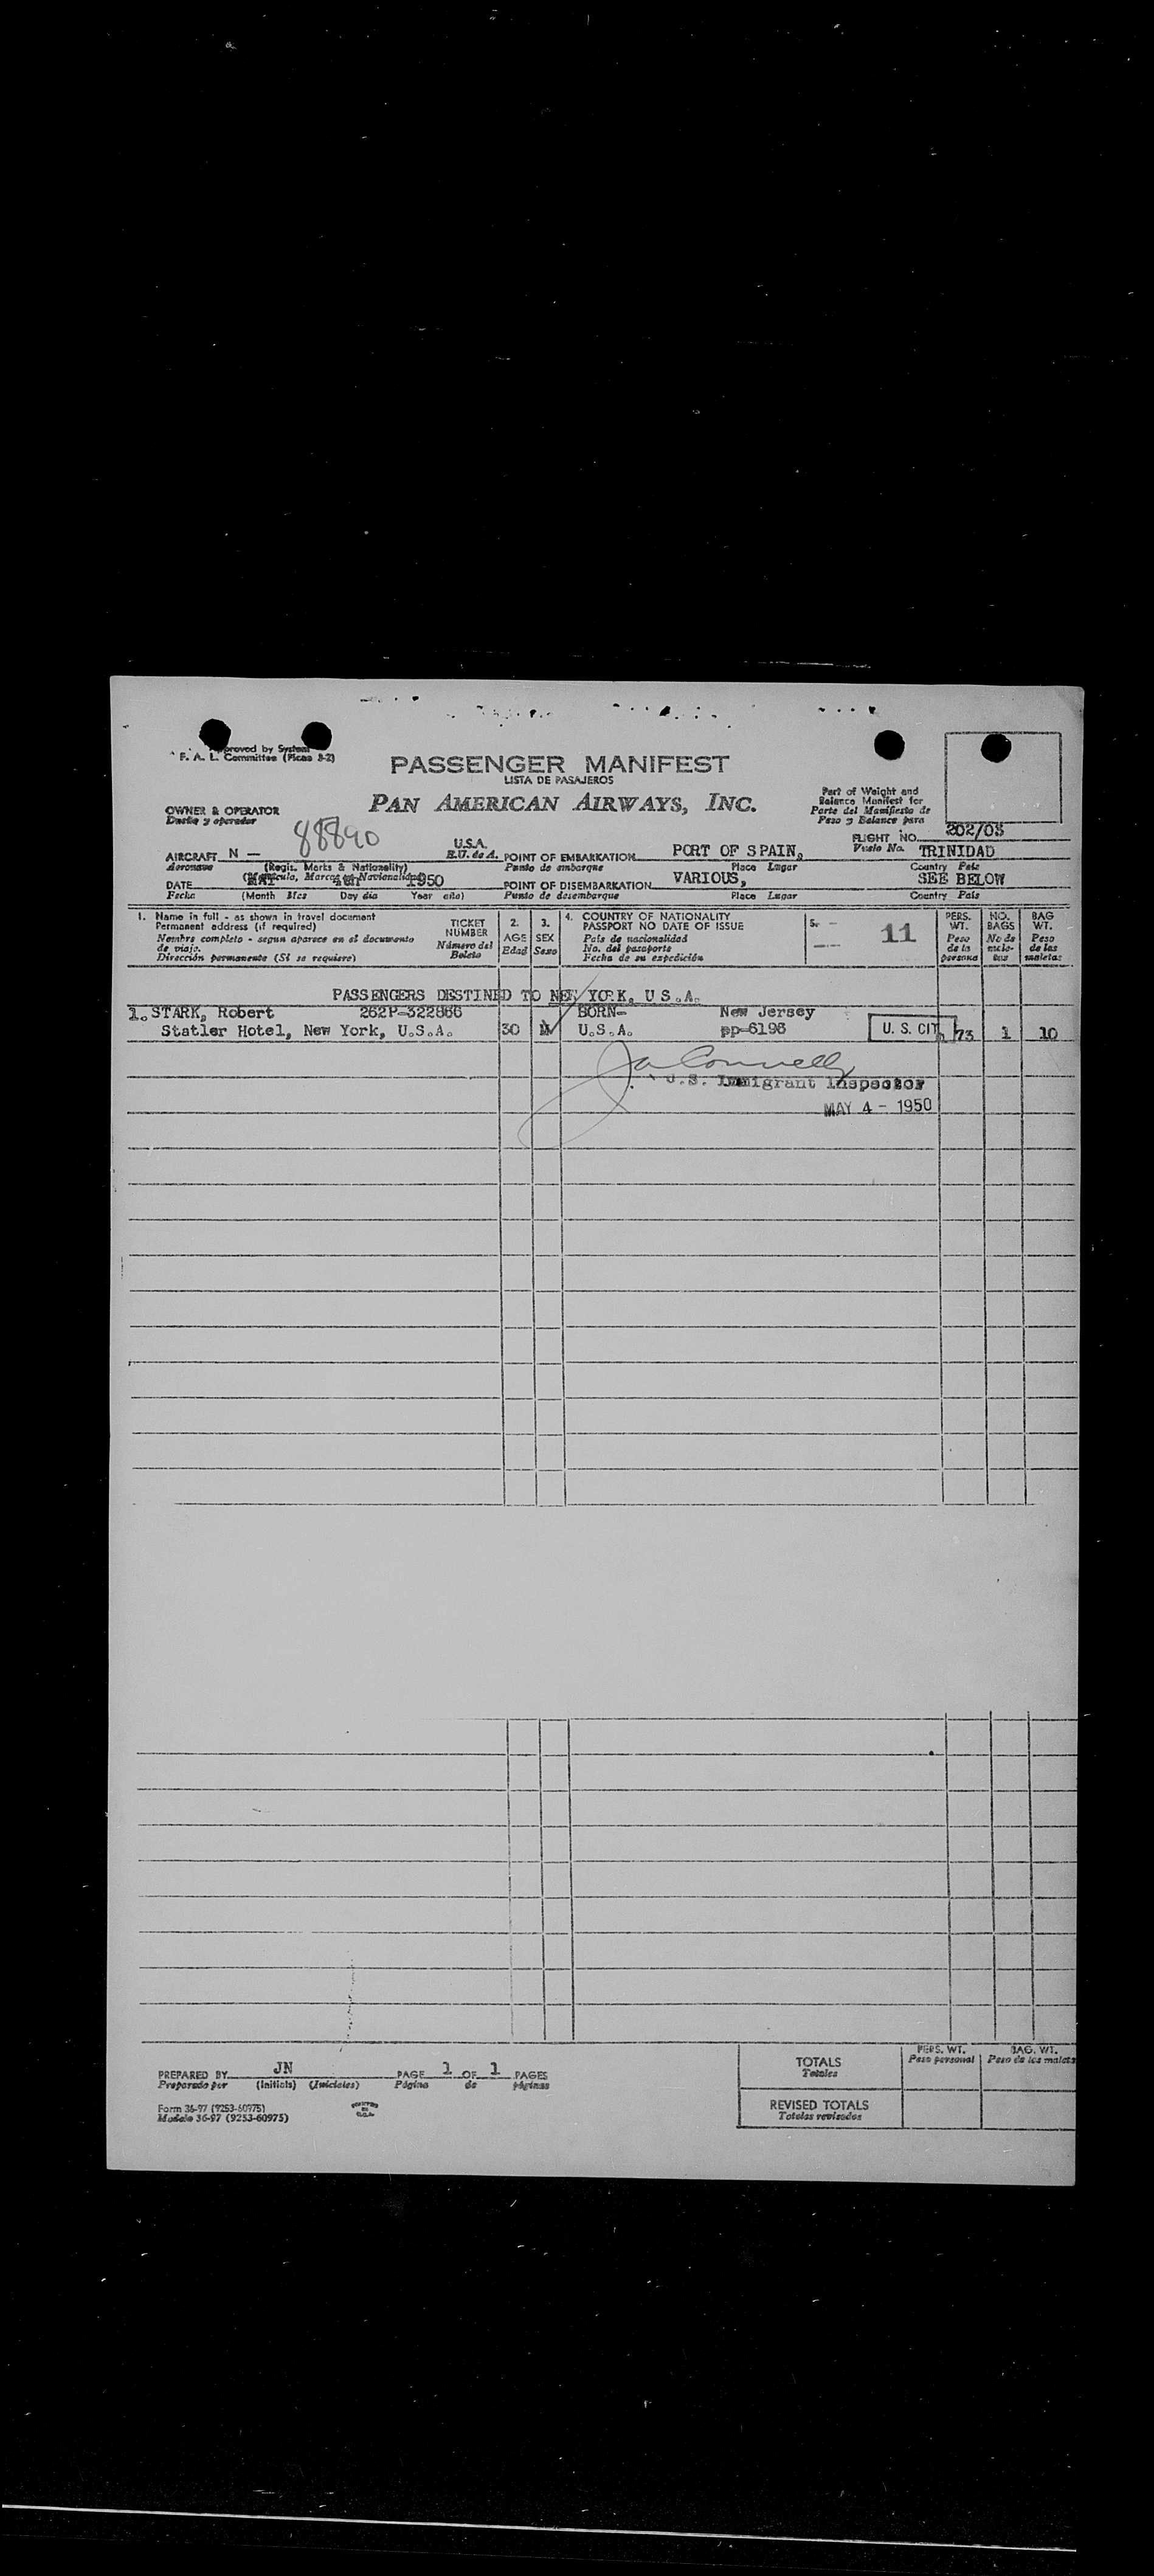 Approved by System
F. A. L. Committee (Picao 3-2)
PASSENGER MANIFEST
LISTA DE PASAJEROS
PAN AMERICAN AIRWAYS, INC.
Part of Weight and
Balance Manifest for
Parte del Manifiesto de
Peso y Balance para
OWNER & OPERATOR
Dueño y operador
FLIGHT NO. 202/03
Vuelo No.
AIRCRAFT N — 88890 U.S.A.
Aeronave (Regis. Marks & Nationality) E.U. de A.
(Matrícula, Marcas en Nacionalidad)
POINT OF EMBARKATION PORT OF SPAIN, TRINIDAD
Punto de embarque Place Lugar Country País
DATE MAY 4TH 1950
Fecha (Month Mes Day día Year año)
POINT OF DISEMBARKATION VARIOUS, SEE BELOW
Punto de desembarque Place Lugar Country País
1. Name in full - as shown in travel document
Permanent address (if required)
Nombre completo - segun aparece en el documento
de viaje.
Dirección permanente (Si se requiere)
TICKET
NUMBER
Número del
Boleto
2.
AGE
Edad
3.
SEX
Sexo
4. COUNTRY OF NATIONALITY
PASSPORT NO DATE OF ISSUE
País de nacionalidad
No. del pasaporte
Fecha de su expedición
5. 11
PERS.
WT.
Peso
de la
persona
NO.
BAGS
No de
male-
tas
BAG
WT.
Peso
de las
maletas
PASSENGERS DESTINED TO NEW YORK, U S.A.
1. STARK, Robert 262P-322866 BORN- New Jersey
Statler Hotel, New York, U.S.A. 30 M U.S.A. pp-6196 U. S. CIT 73 1 10
U.S. Immigrant Inspector
MAY 4 - 1950
PREPARED BY JN
Preparado por (Initials) (Iniciales)
PAGE 1 OF 1 PAGES
Página de páginas
Form 36-97 (9253-60975)
Modelo 36-97 (9253-60975)
PERS. WT.
Peso personal
BAG. WT.
Peso de las maletas
TOTALS
Totales
REVISED TOTALS
Totales revisados